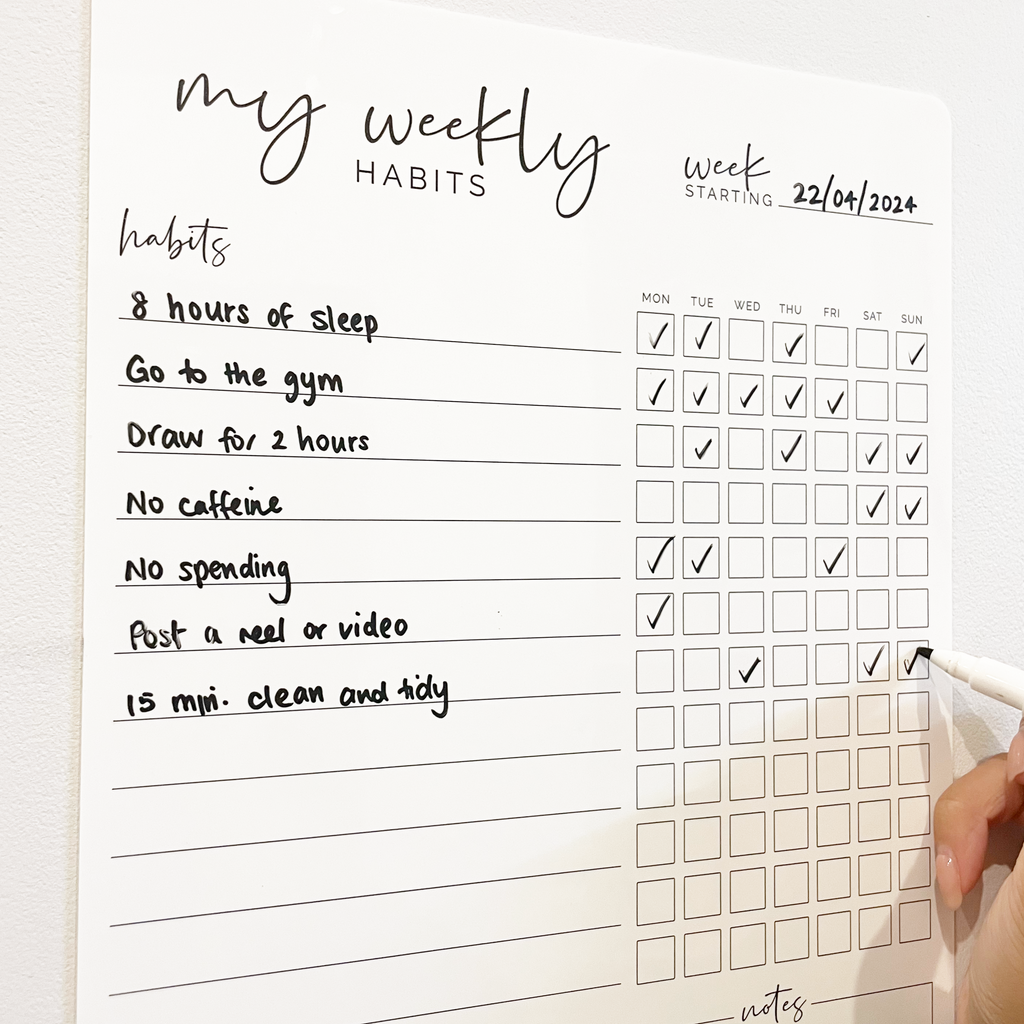 my weekly
HABITS
week
STARTING 22/04/2024
habits
MON TUE WED THU FRI SAT SUN
8 hours of sleep
Go to the gym
Draw for 2 hours
No caffeine
No spending
Post a reel or video
15 min. clean and tidy
notes